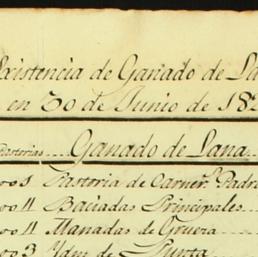 Existencia de Ganado de La
en 30 de Junio de 18
Pastorias Ganado de Lana
Pastoria de Carner.s Padr
Baciadas Principales
Manadas de Grueia
3 Ydm de Punta